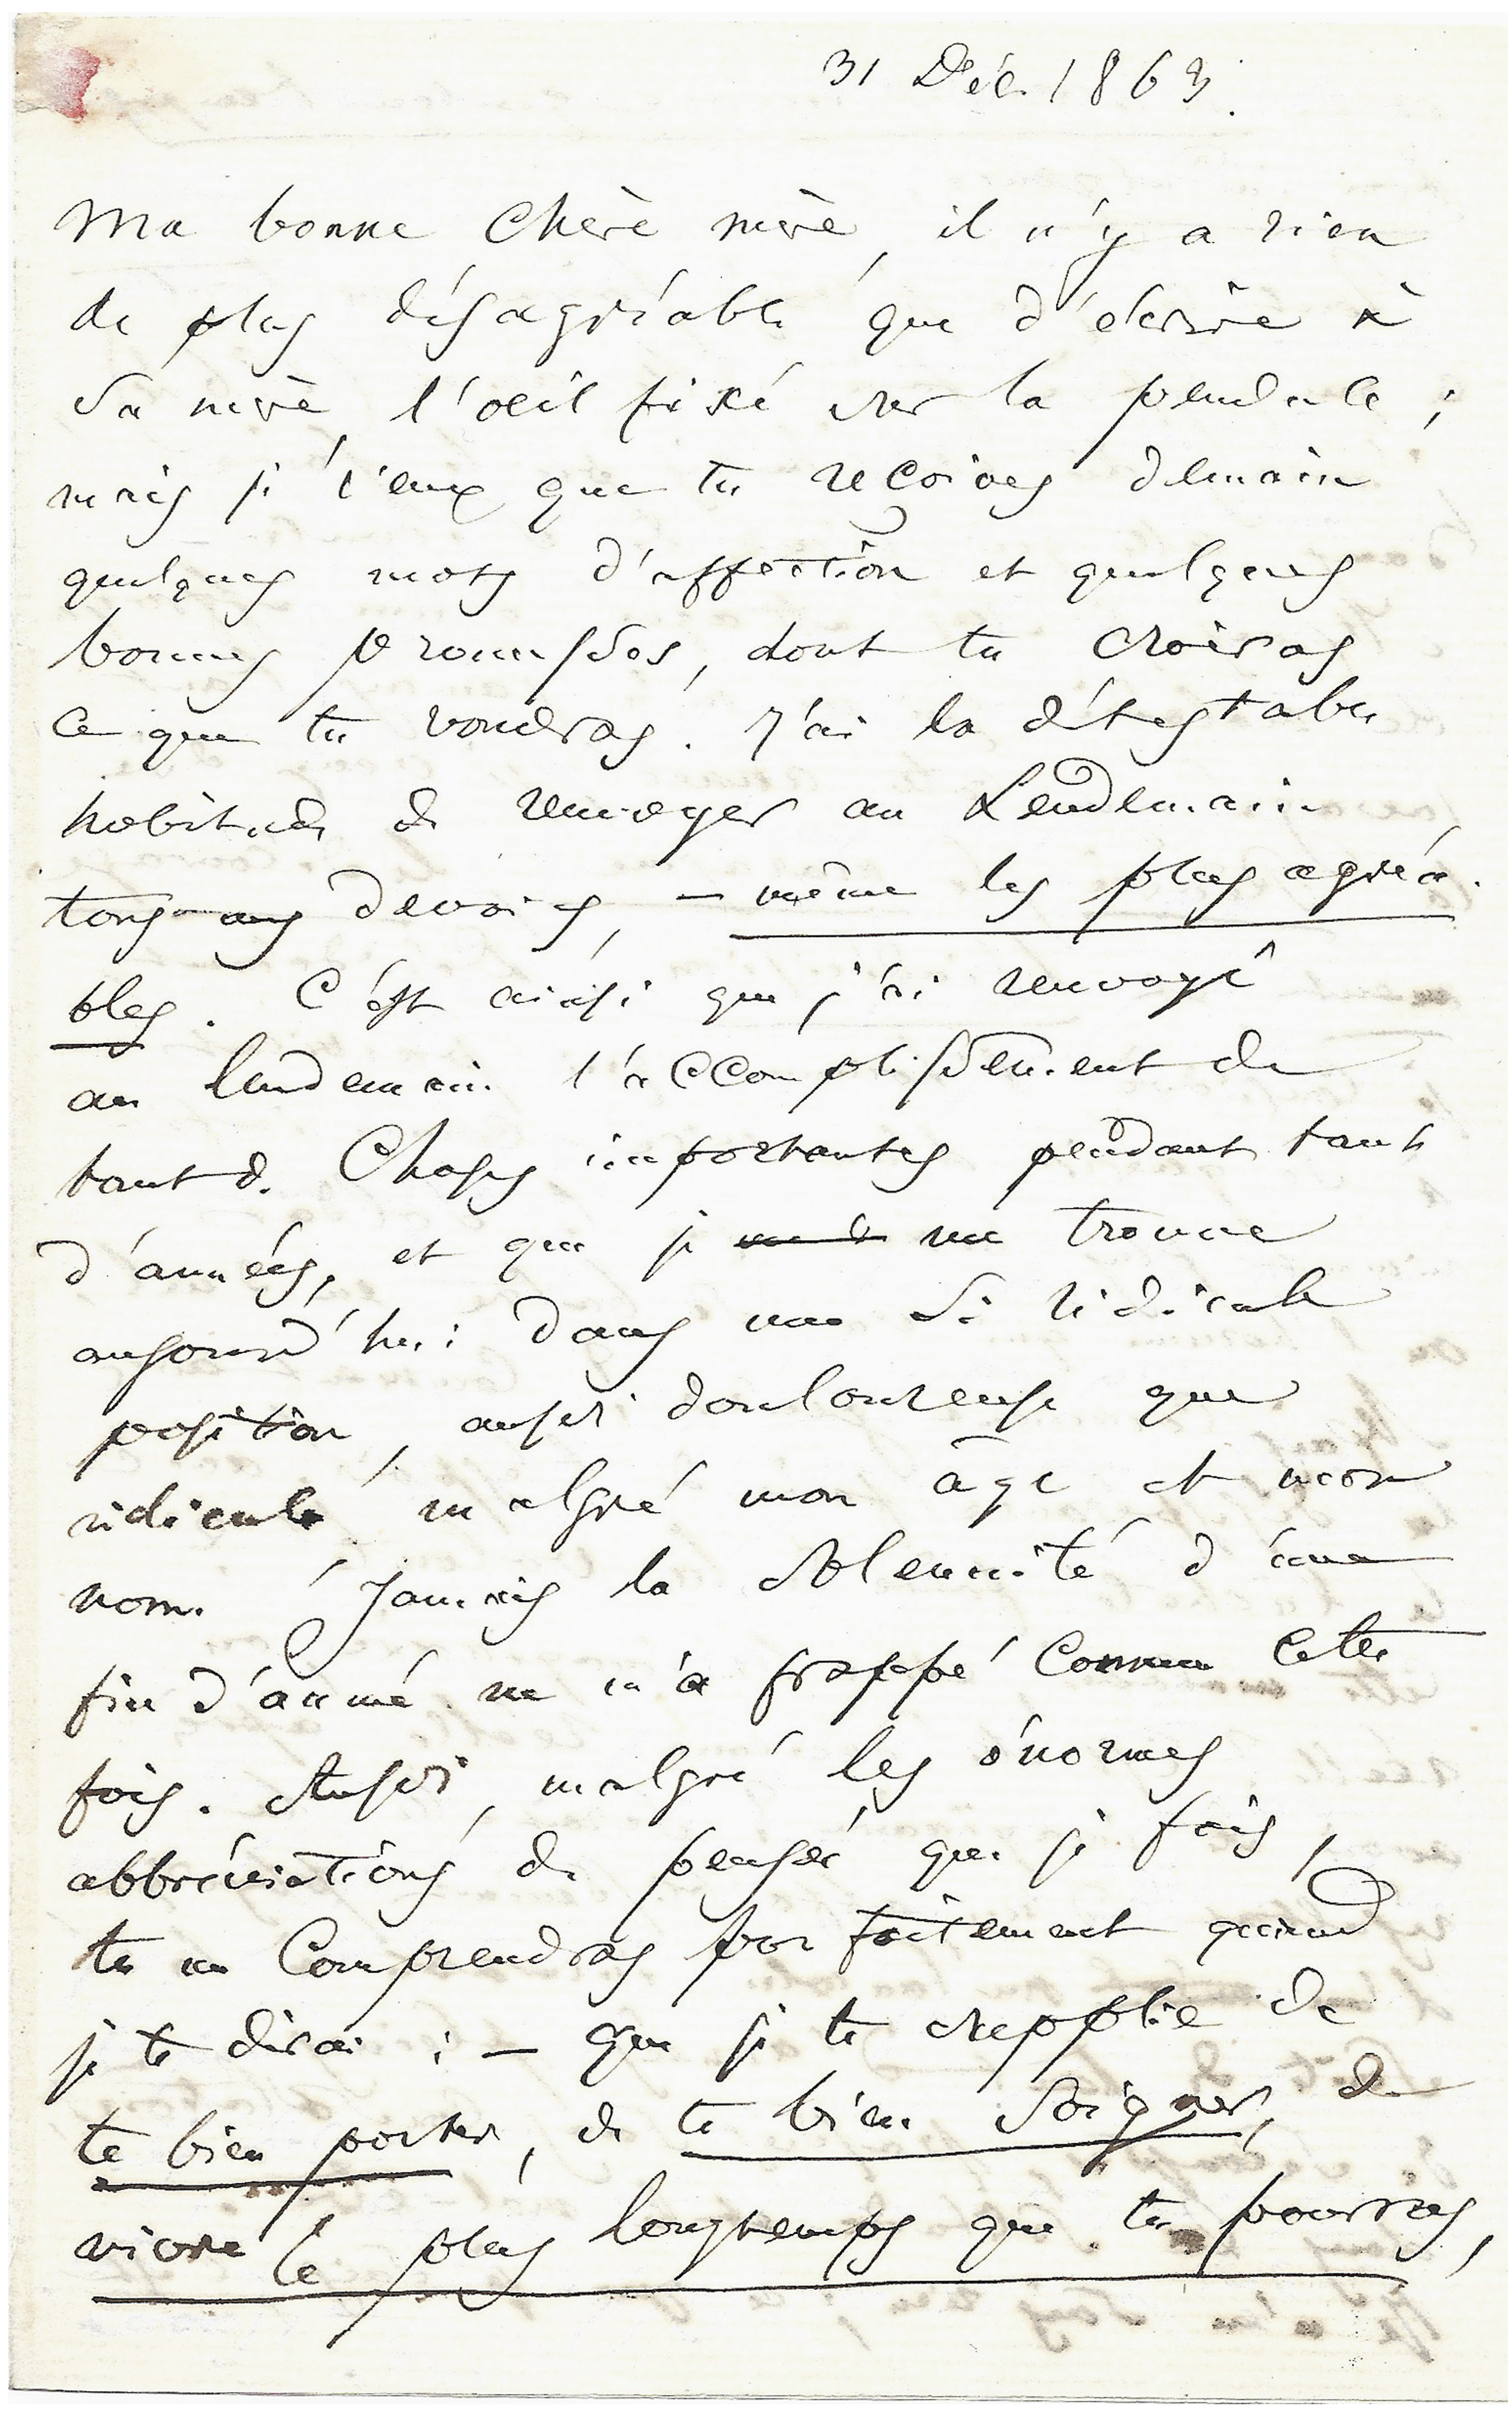 31 Déc. 1863.
Ma bonne chère mère, il n'y a rien
de plus désagréable que d'écrire à
sa mère, l'œil fixé sur la pendule ;
mais je veux que tu reçoives demain
quelques mots d'affection et quelques
bonnes promesses, dont tu croiras
ce que tu voudras. J'ai la détestable
habitude de renvoyer au Lendemain
tous mes devoirs, — même les plus agréa-
bles. C'est ainsi que j'ai renvoyé
au lendemain l'accomplissement de
tant de choses importantes pendant tant
d'années, et que je me trouve
aujourd'hui dans une si ridicule
position, aussi douloureuse que
ridicule, malgré mon âge et mon
nom. Jamais la solennité d'une
fin d'année ne m'a frappé comme cette
fois. Aussi, malgré les énormes
abbréviations de pensée que je fais,
tu me comprendras parfaitement quand
je te dirai : — que je te supplie de
te bien porter, de te bien soigner, de
vivre le plus longtemps que tu pourras,